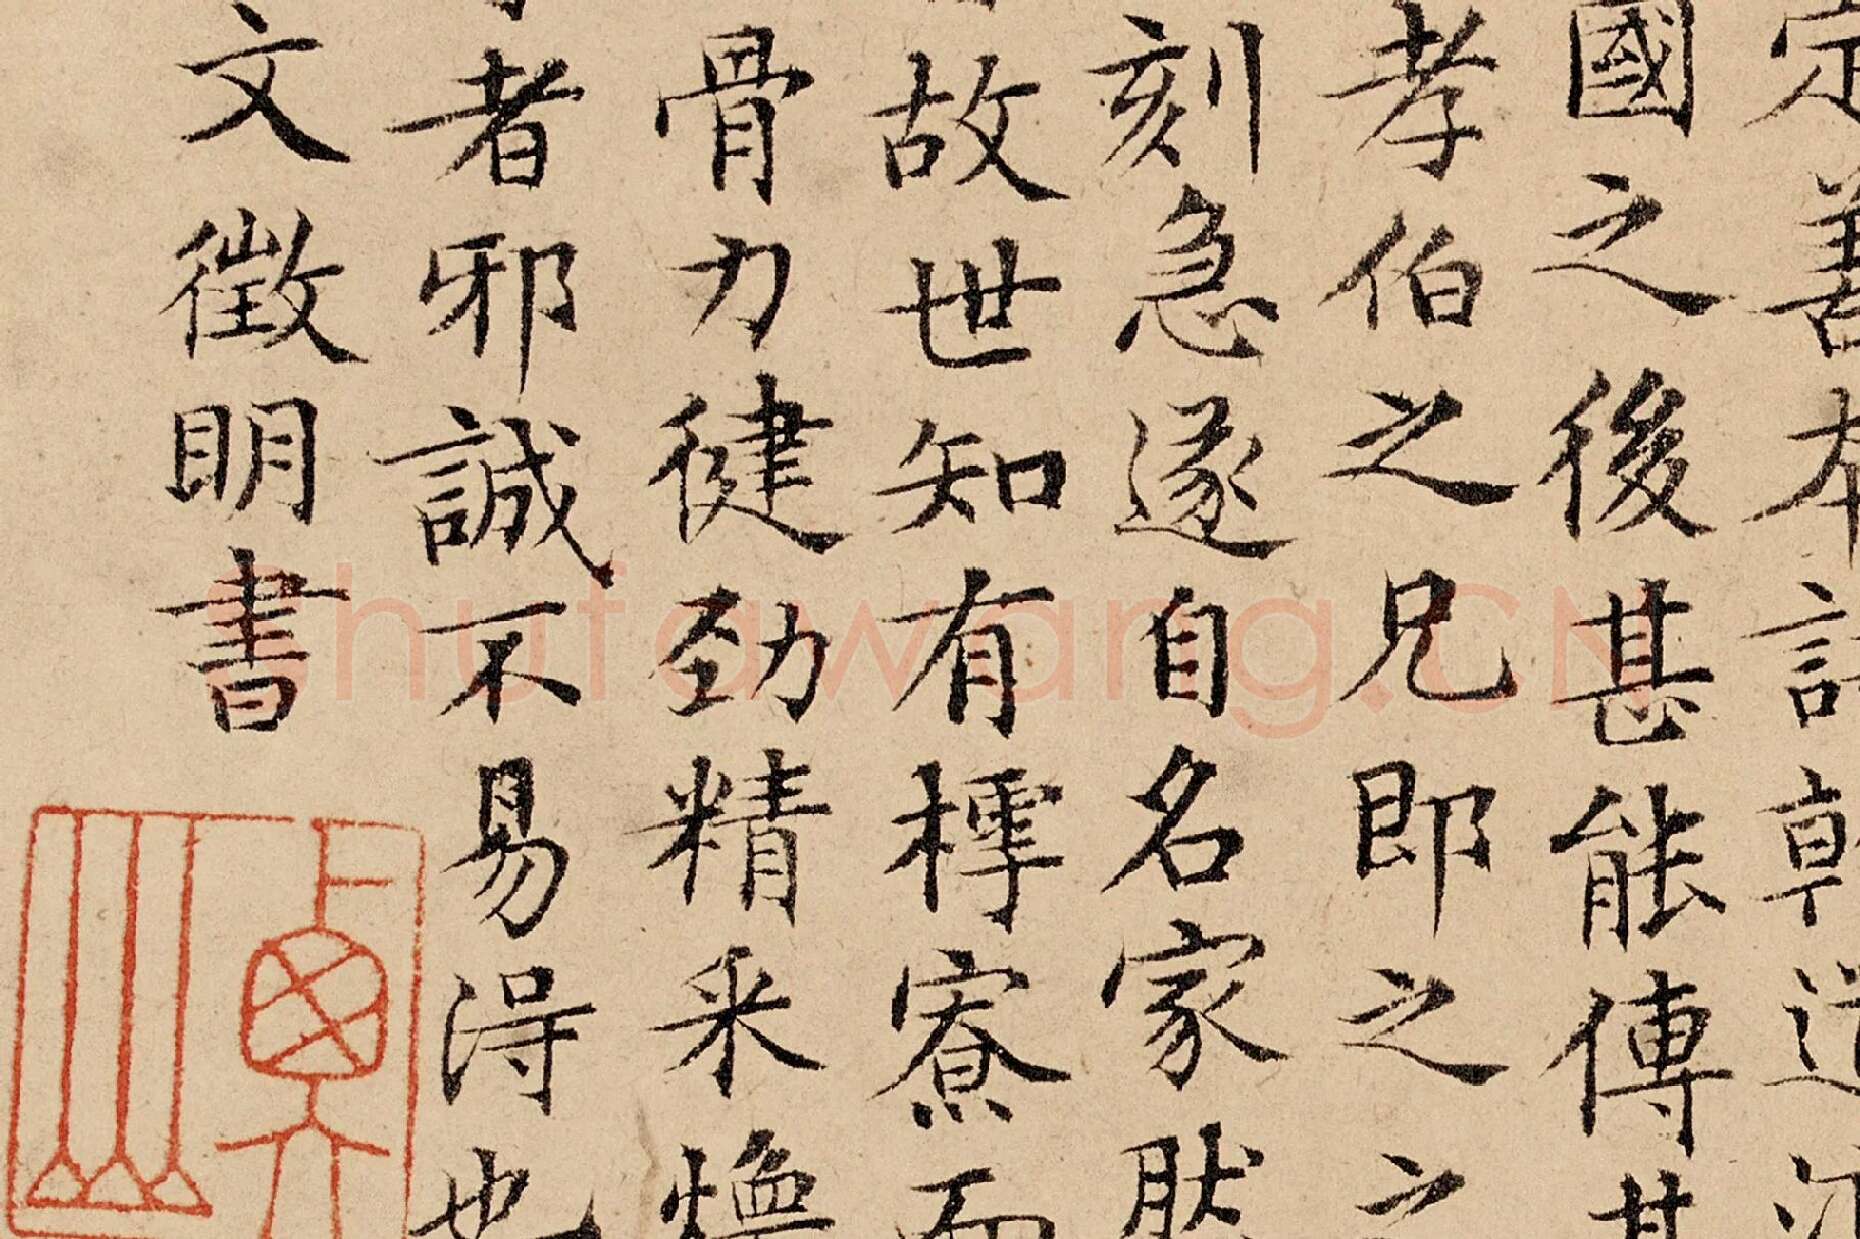 定善本記乾道
國之後甚能傳其
孝伯之兄即之之
刻急遂自名家然
故世知有樗寮而
骨力健勁精采煥
者邪誠不易得也
文徵明書
Shufawang.CN